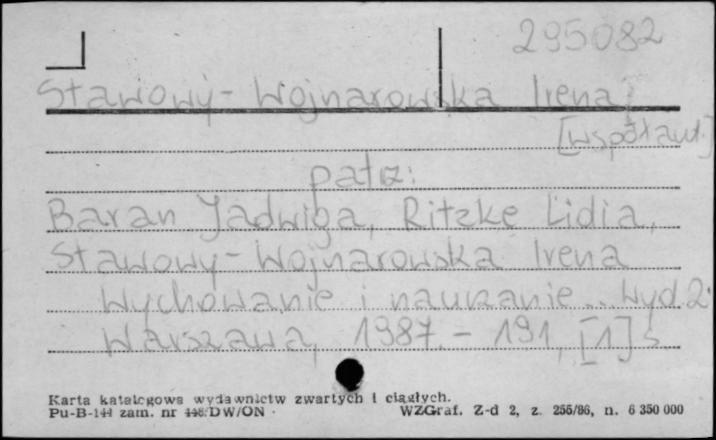 295082
Stawowy-Wojnarowska Irena;
[współaut.]
patrz:
Baran Jadwiga, Ritzke Lidia,
Stawowy-Wojnarowska Irena
Wychowanie i nauczanie... Wyd. 2.
Warszawa, 1987. - 191, [1] s.
Karta katalogowa wydawnictw zwartych i ciągłych.
Pu-B-141 zam. nr DW/ON WZGraf. Z-d 2, z. 255/86, n. 6 350 000